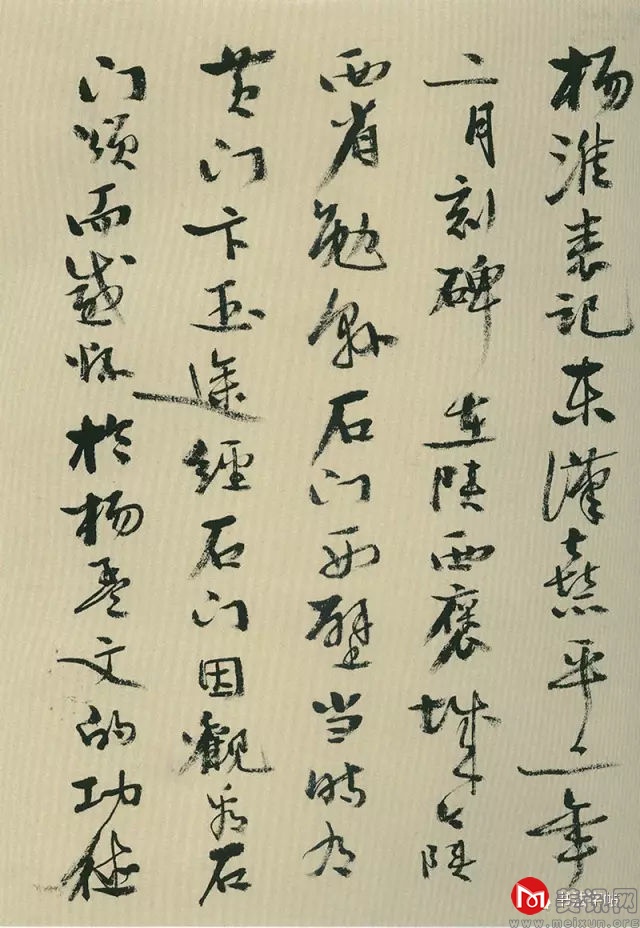 杨淮表记东漢熹平二年
二月刻碑在陕西褒城今陕
西省勉縣石门西壁当時有
黄门卞玉途經石门因觀看石
门頌而感怀於杨孟文的功德
美讯网
www.meixun.org